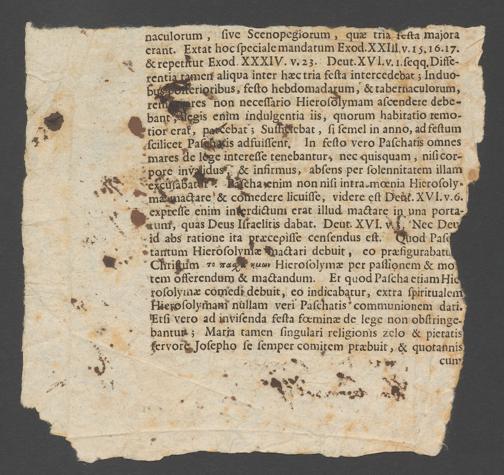 naculorum, sive Scenopegiorum, quæ tria festa majora
erant. Extat hoc speciale mandatum Exod. XXIII. v. 15. 16. 17.
& repetitur Exod. XXXIV. v. 23. Deut. XVI. v. 1. seqq. Diffe-
rentia tamen aliqua inter hæc tria festa intercedebat; Induo-
bus posterioribus, festo hebdomadarum, & tabernaculorum,
remotiores non necessario Hierosolymam ascendere debe-
bant, legis enim indulgentia iis, quorum habitatio remo-
tior erat, parcebat; Sufficiebat, si semel in anno, ad festum
scilicet Paschatis adfuissent. In festo vero Paschatis omnes
mares de lege interesse tenebantur, nec quisquam, nisi cor-
pore invalidus, & infirmus, absens per solennitatem illam
excusabatur. Pascha enim non nisi intra mœnia Hierosoly-
mæ mactare & comedere licuisse, videre est Deut. XVI. v. 6.
expresse enim interdictum erat illud mactare in una porta-
rum, quas Deus Israelitis dabat. Deut. XVI. v. Nec Deu
id abs ratione ita præcepisse censendus est. Quod Pasc
tantum Hierosolymæ mactari debuit, eo præfigurabatu
Christum Hierosolymæ per passionem & mo
tem offerendum & mactandum. Et quod Pascha etiam Hie
rosolymæ comedi debuit, eo indicabatur, extra spiritualem
Hierosolymam nullam veri Paschatis communionem dari.
Etsi vero ad invisenda festa fœminæ de lege non obstringe-
bantur; Maria tamen singulari religionis zelo & pietatis
fervore Josepho se semper comitem præbuit, & quotannis
cum